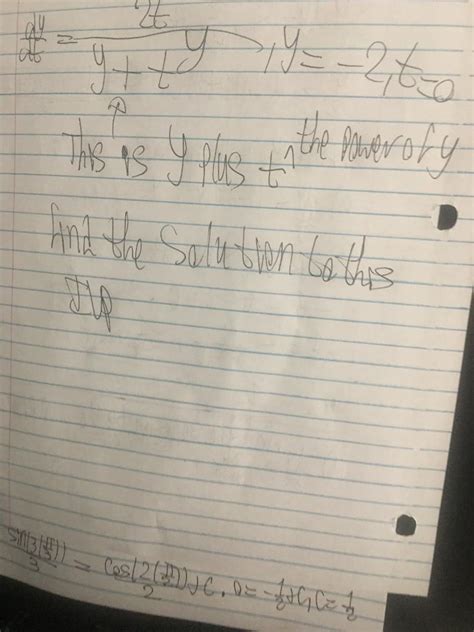 dy/dt = 2t/(y + t^y), y = -2, t = 0
This is y plus t^ the power of y
find the Solution to this
IVP
sin(3(π/3))/3 = cos(2(π/2))/2 + C, 0 = -1/2 + C, C = 1/2